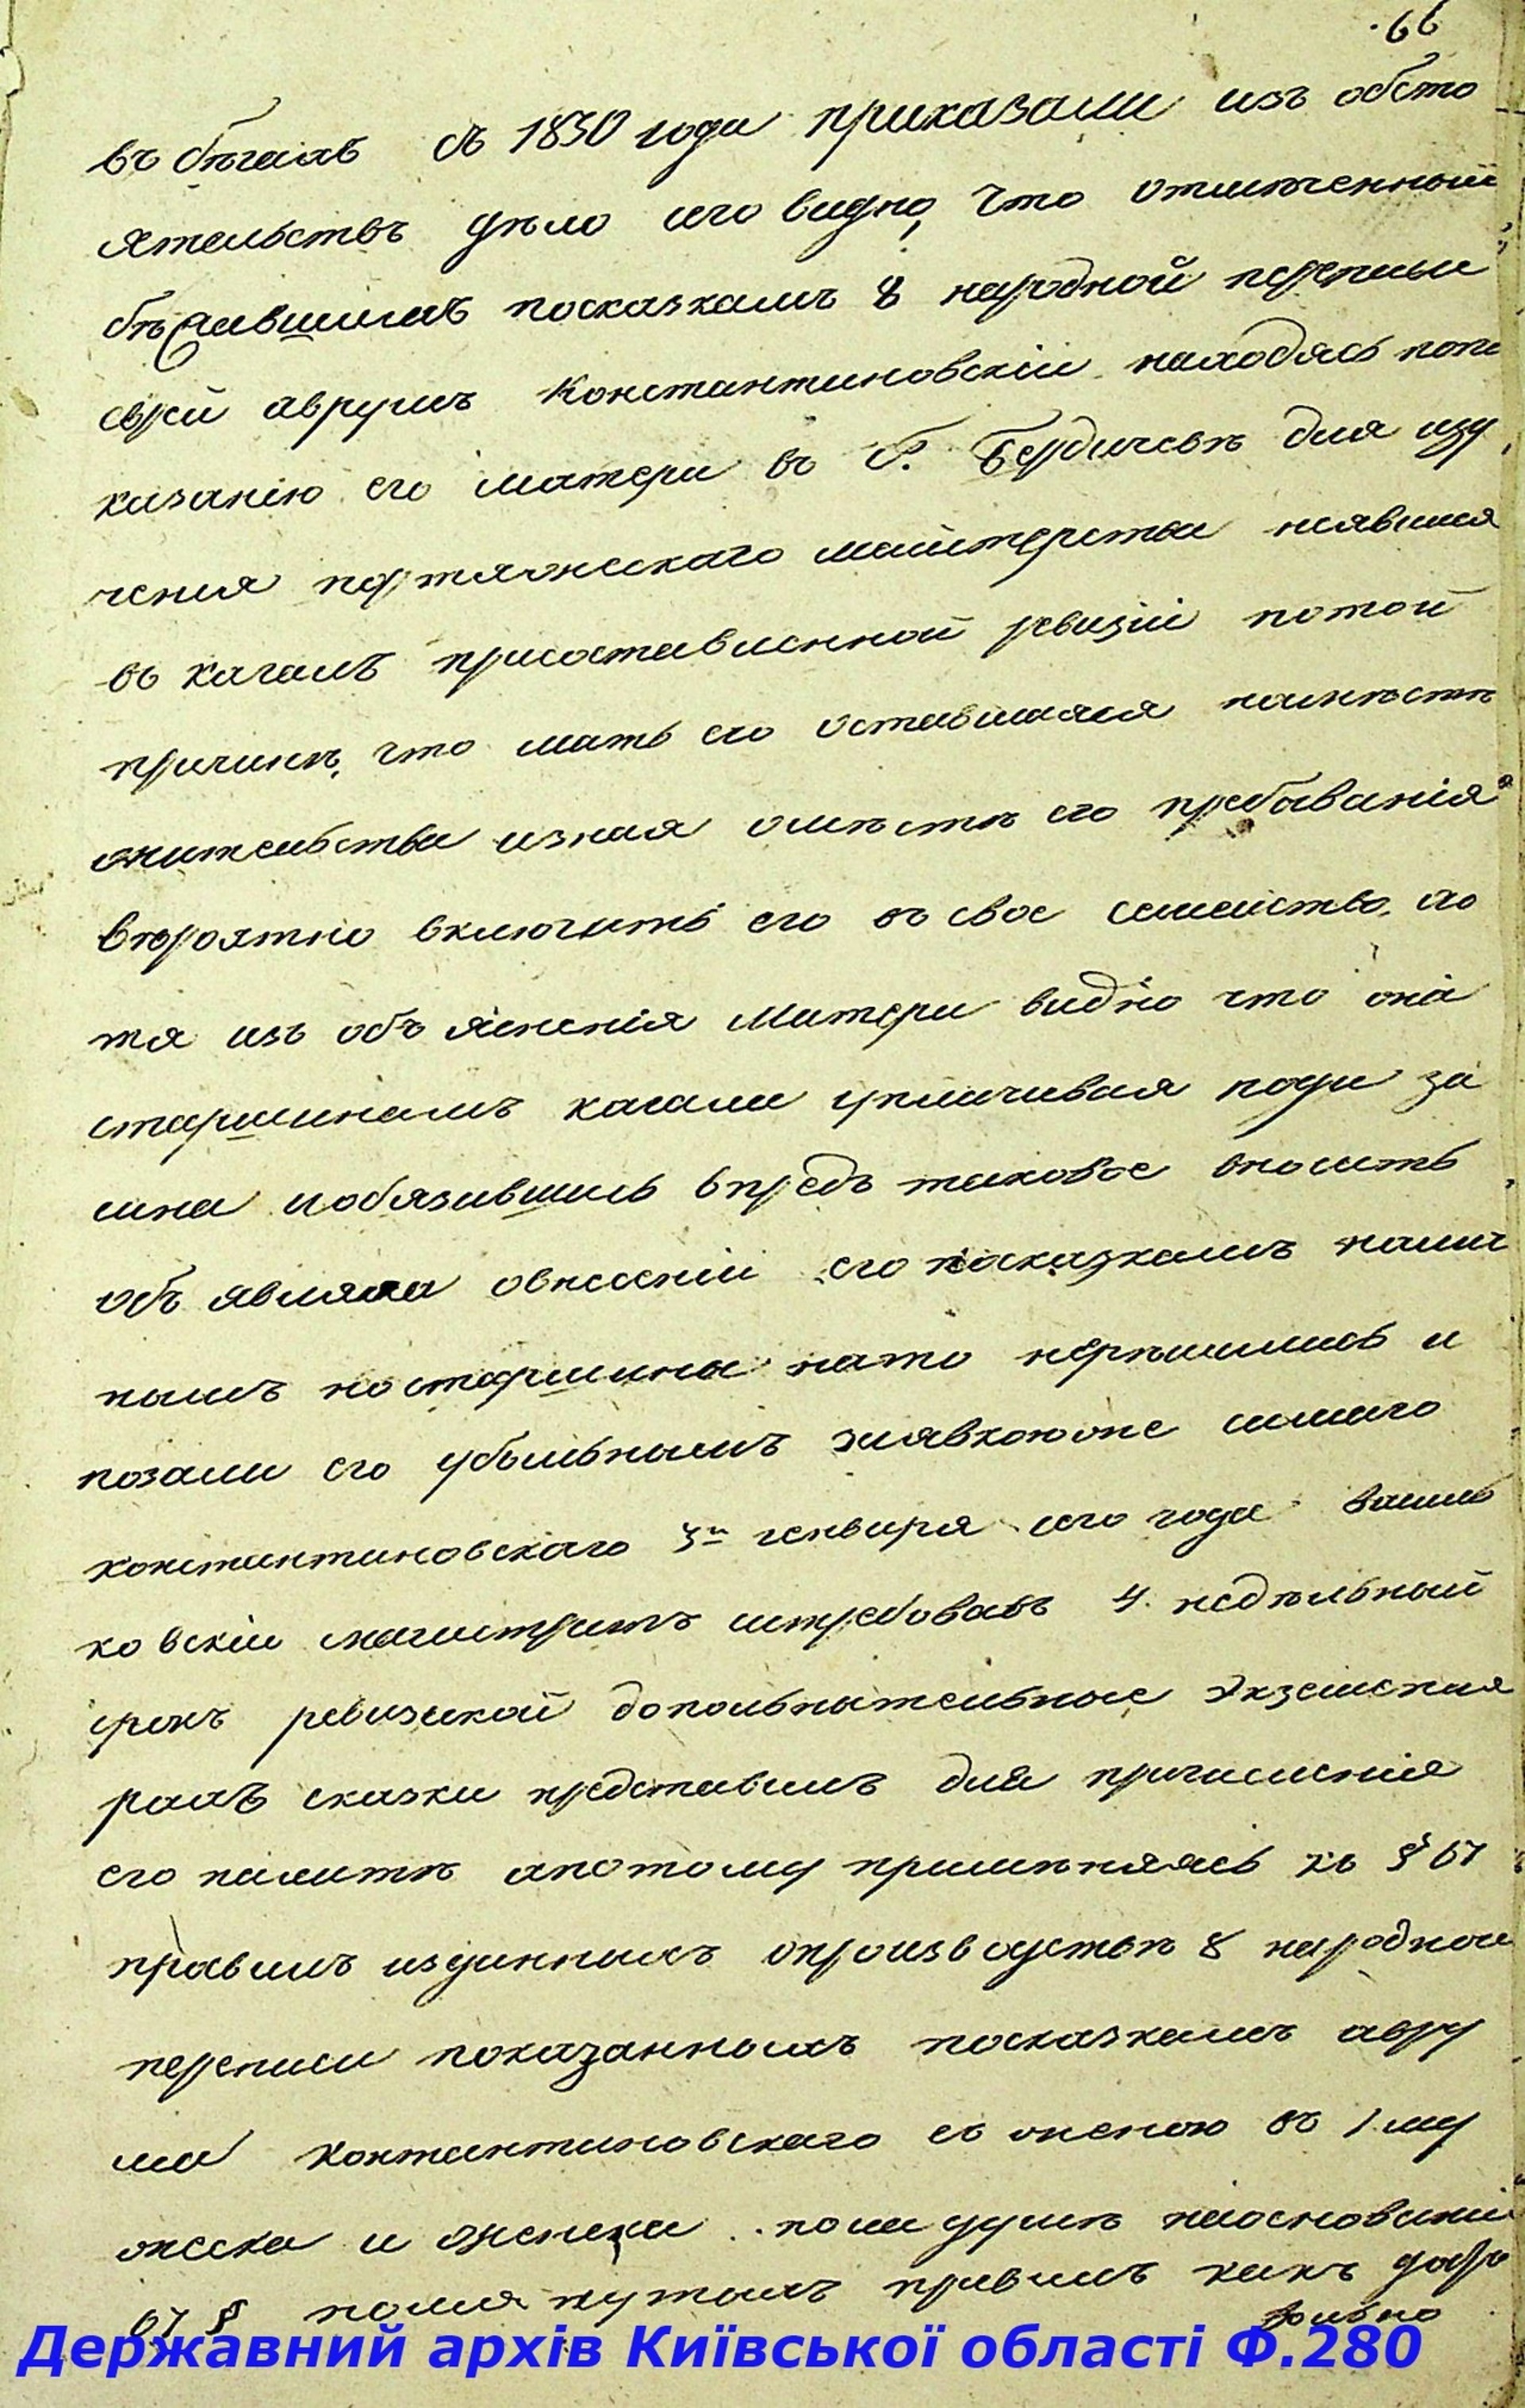 66
въ бегахъ съ 1830 года приказали изъ обсто
ятельствъ дѣло сего видно, что отмѣченный
бѣжавшимъ посказкамъ 8 народной переписи
еврей аврумъ Константиновскій находясь попо
казанію его матери въ Г. Бердичевѣ для изу
ченія портяжескаго майстерства неявился
въ кагалъ присоставленной ревизіи потой
причинѣ, что мать его оставшаяся намѣстѣ
жительства изная омѣстѣ его пребыванія
вѣроятно включитъ его въ свое семейство, хо
тя изъ объясненія Матери видно что она
старшинамъ кагала уплачивая подати за
сына иобязавшись впредь таковое вносить
объявляла овнесеніи его посказкамъ налич
нымъ но старшины нато нерѣшились и
показали его убыльнымъ заявкоюже самаго
константиновскаго 3го генваря сего года Василь
ковскій магистратъ истребовавъ 4. недѣльный
срокъ ревизской дополнительные экземпля
рахъ сказки представилъ для причисленія
его палатѣ апотому примѣняясь къ § 67
правилъ изданныхъ опроизводствѣ 8 народной
переписи показанныхъ посказкамъ авру
ма константиновскаго съ женою въ 1 му
жеска и женска пола душѣ наоснованіи
67 § помянутыхъ правилъ какъ добро
вольно
Державний архів Київської області Ф.280